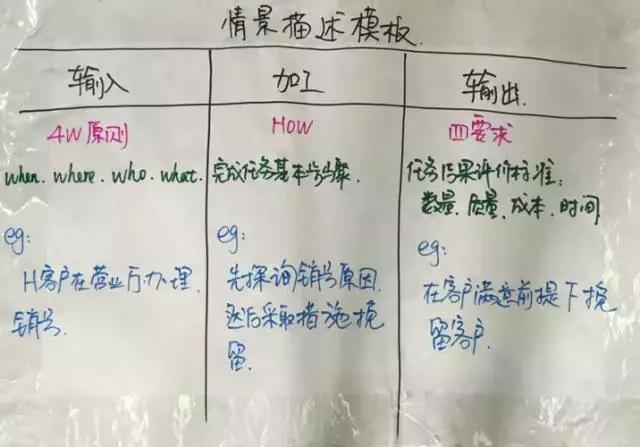 情景描述模板.
输入
加工
输出.
4W原则
HOW
四要求
when. where. who. what.
完成任务基本步骤.
任务后果评价标准:
数量. 质量. 成本. 时间
eg:
H客户在营业厅办理.
销号.
eg:
先探询销号原因.
然后采取措施挽
留.
eg:
在客户满意前提下挽
留客户.